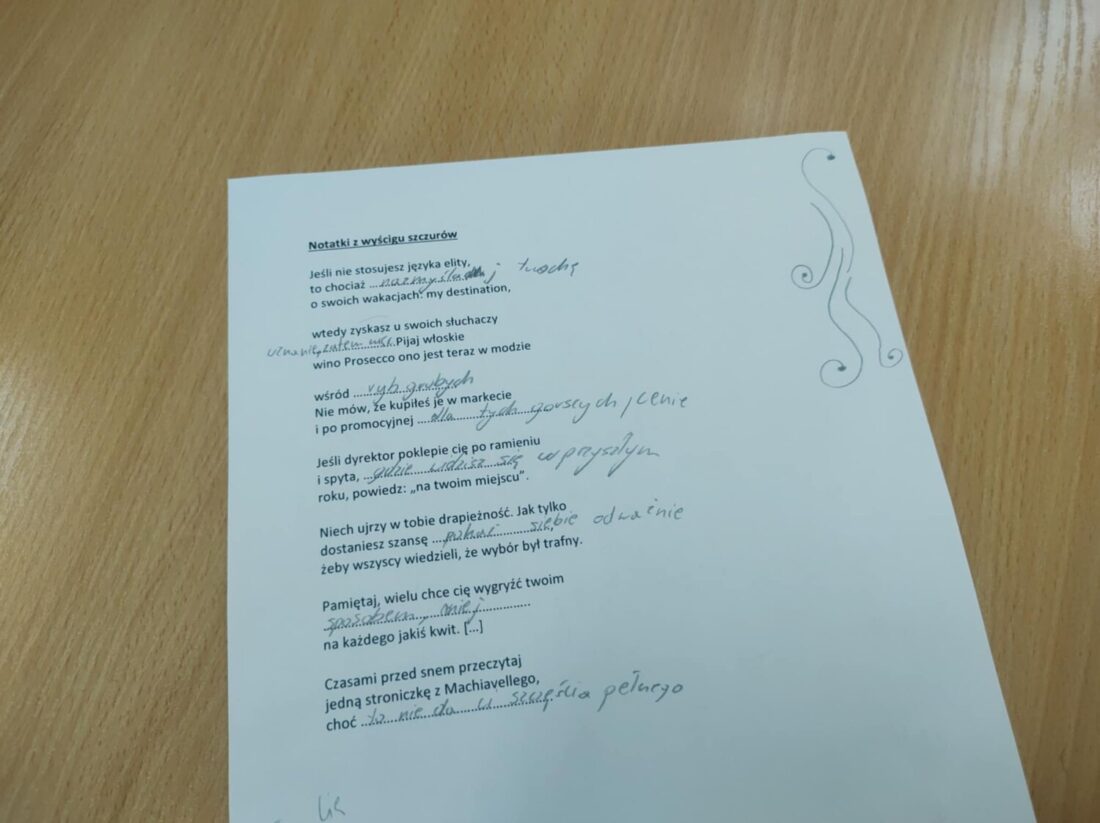 Notatki z wyścigu szczurów
Jeśli nie stosujesz języka elity,
to chociaż ... nazmyślaj trochę
o swoich wakacjach: my destination,
wtedy zyskasz u swoich słuchaczy
uznanie, zatem .Pijaj włoskie
wino Prosecco ono jest teraz w modzie
wśród ... ryb grubych
Nie mów, że kupiłeś je w markecie
i po promocyjnej ... dla tych gorszych, cenie
Jeśli dyrektor poklepie cię po ramieniu
i spyta, ... gdzie widzisz się w przyszłym
roku, powiedz: „na twoim miejscu”.
Niech ujrzy w tobie drapieżność. Jak tylko
dostaniesz szansę ... pokaż siebie odważnie
żeby wszyscy wiedzieli, że wybór był trafny.
Pamiętaj, wielu chce cię wygryźć twoim
sposobem, miej ...
na każdego jakiś kwit. [...]
Czasami przed snem przeczytaj
jedną stroniczkę z Machiavellego,
choć ... to nie da ci szczęścia pełnego